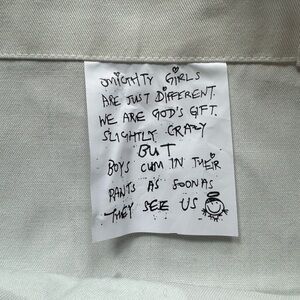 ALMIGHTY GIRLS
ARE JUST DIFFERENT.
WE ARE GOD'S GIFT.
SLIGHTLY CRAZY
BUT
BOYS CUM IN THEIR
PANTS AS SOON AS
THEY SEE US